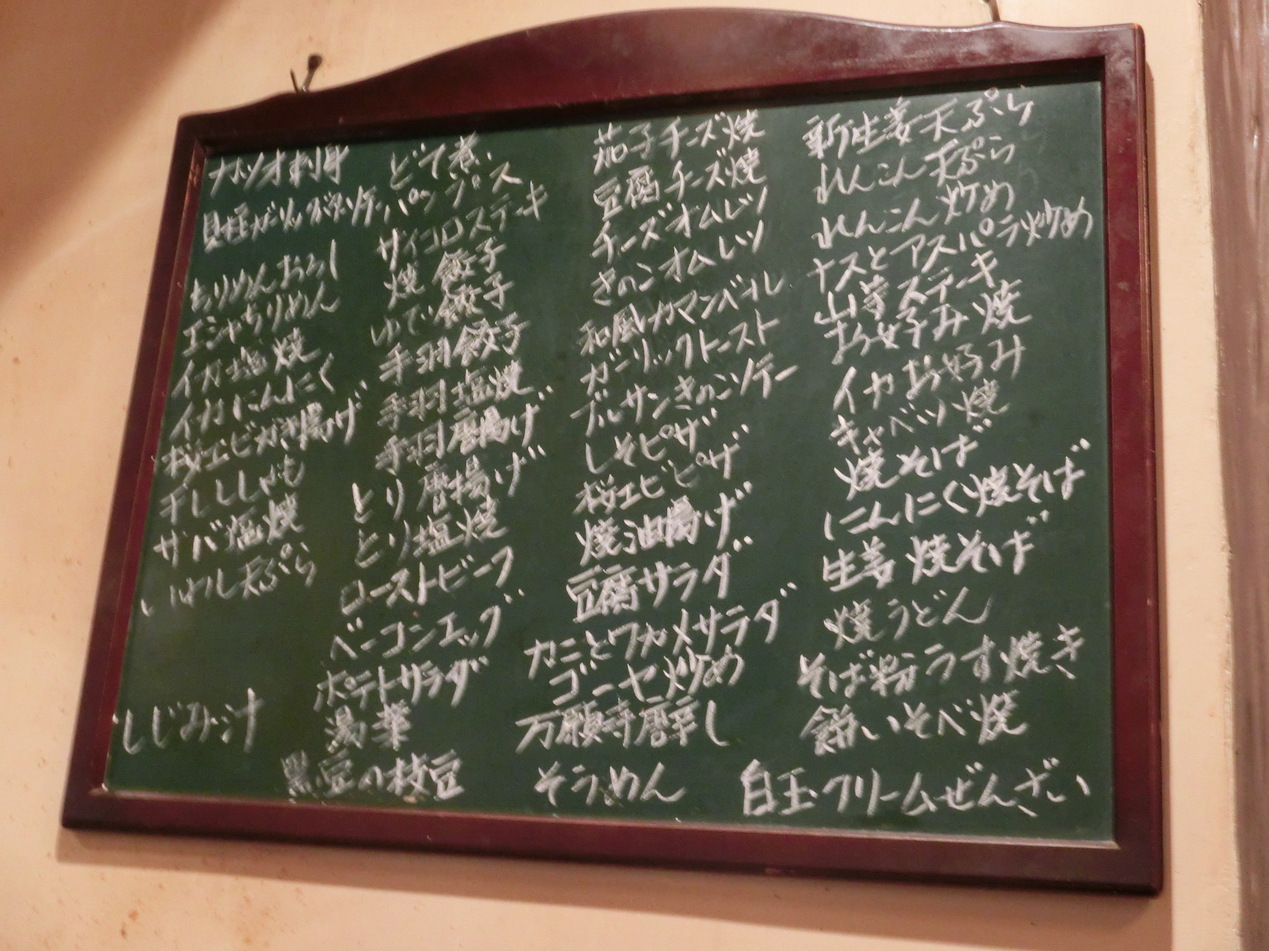 カツオ刺身
ちりめんおろし
エシャちりめん
イカ塩焼
イカにんにく
桜エビかき揚げ
干ししゃも
サバ塩焼
いわし天ぷら
しじみ汁
どて煮
パップス
サイコロステーキ
焼餃子
ゆで餃子
手羽餃子
手羽塩焼
手羽唐揚げ
とり唐揚げ
とり塩焼
ローストビーフ
ベーコンエッグ
ポテトサラダ
湯葉
黒豆の枝豆
茄子チーズ焼
豆腐チーズ焼
チーズオムレツ
きのこオムレツ
和風カマンベール
ガーリックトースト
ブルサンきのこソテー
しそピザ
桜エビピザ
焼油揚げ
豆腐サラダ
カニとワカメサラダ
ゴーヤ炒め
万願寺唐辛し
そうめん
新生姜天ぷら
れんこん天ぷら
れんこん炒め
ナスとアスパラ炒め
山芋ステーキ
お好み焼
イカお好み
キャベツ焼
焼そば
にんにく焼そば
生姜焼そば
焼うどん
そば粉うす焼き
餅いそべ焼
白玉クリームぜんざい